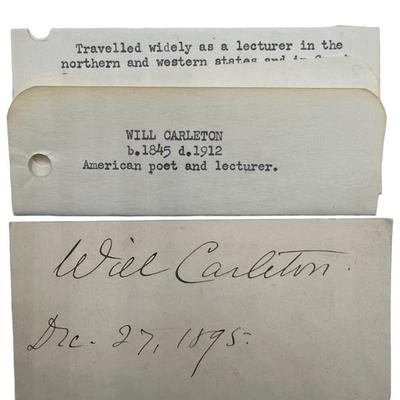 Travelled widely as a lecturer in the
northern and western states and in
WILL CARLETON
b.1845 d.1912
American poet and lecturer.
Will Carleton.
Dec. 27, 1895.